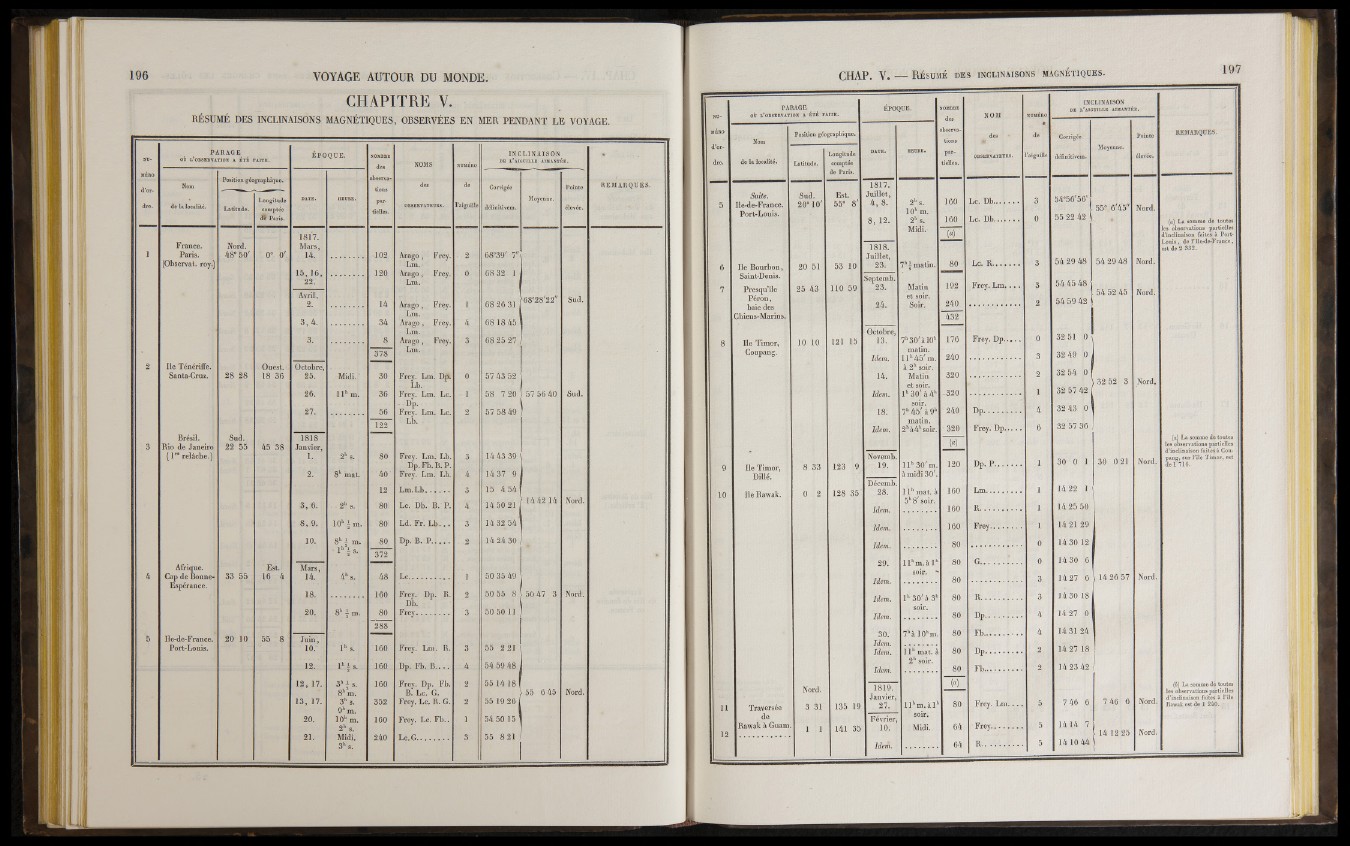 196 VOYAGE AUTOUR DU MONDE.
CHAPITRE V.
RÉSUMÉ DES INCLINAISONS MAGNÉTIQUES, OBSERVÉES EN MER PENDANT LE VOYAGE.
NUMÉRO d'ordre. PARAGE OÙ L'OBSERVATION A ÉTÉ FAITE. ÉPOQUE. NOMBRE des observations partielles. NOMS des OBSERVATEURS. NUMÉRO de l'aiguille INCLINAISON DE L'AIGUILLE AIMANTÉE. REMARQUES.
Nom de la localité. Position géographique. Latitude. Longitude comptée de Paris. DATE. HEURE. Corrigée définitivem. Moyenne. Pointe élevée.
1817.
1 France. Nord. Mars,
Paris. 48° 50' 0° 0'. 14. ........ 102 Arago, Frey. Lm. 2 68°39' 7"
(Observat. roy.)
15, 16, 22. ........ 120 Arago, Frey. Lm. 0 68 32 1
Avril,
2. ........ 14 Arago, Frey. Lm. 1 68 26 31 68°28'22" Sud.
3, 4. ........ 34 Arago, Frey. Lm. 4 68 18 45
3. ........ 8 Arago, Frey. Lm. 3 68 25 27
378
2 Ile Ténériffe. Ouest. Octobre,
Santa-Cruz. 28 28 18 36 25. Midi. 30 Frey. Lm. Dp. Lb. 0 57 43 52
26. 11h m. 36 Frey. Lm. Lc. Dp. 1 58 7 20 57 56 40 Sud.
27. ........ 56 Frey. Lm. Lc. Lb. 2 57 58 49
122
Brésil. Sud. 1818
3 Rio de Janeiro 22 55 45 38 Janvier,
(1re relâche.) 1. 2h s. 80 Frey. Lm. Lb. Dp. Fb. B. P. 3 14 43 30
2. 8h mat. 40 Frey. Lm. Lb. 4 14 37 9
12 Lm. Lb...... 3 15 4 54
3, 6. 2h s. 80 Lc. Db. B. P. 4 14 50 21 14 42 14 Nord.
8, 9. 10h ½ m. 80 Ld. Fr. Lb... 3 14 32 54
10. 8h ½ m. 1h ½ s. 80 Dp. B. P..... 2 14 24 30
372
Afrique. Est. Mars,
4 Cap de Bonne-Espérance. 33 55 16 4 14. 4h s. 48 Lc.......... 1 50 35 49
18. ........ 160 Frey. Dp. R. Db. 2 50 55 8 50 47 3 Nord.
20. 8h ½ m. 80 Frey........ 3 50 50 11
288
5 Ile-de-France. 20 10 55 8 Juin,
Port-Louis. 10. 1h s. 160 Frey. Lm. R. 3 55 2 21
12. 1h ½ s. 160 Dp. Fb. B.... 4 54 59 48
12, 17. 3h ½ s. 8h m. 160 Frey. Dp. Fb. B. Lc. G. 2 55 14 18
13, 17. 3h s. 9h m. 352 Frey. Lc. R. G. 2 55 19 26 55 6 45 Nord.
20. 10h m. 2h s. 160 Frey. Lc. Fb.. 1 54 50 15
21. Midi, 3h s. 240 Lc. G........ 3 55 8 21
CHAP. V. — RÉSUMÉ DES INCLINAISONS MAGNÉTIQUES. 197
NUMÉRO d'ordre. PARAGE OÙ L'OBSERVATION A ÉTÉ FAITE. ÉPOQUE. NOMBRE des observations partielles. NOM des OBSERVATEURS. NUMÉRO de l'aiguille INCLINAISON DE L'AIGUILLE AIMANTÉE. REMARQUES.
Nom de la localité. Position géographique. Latitude. Longitude comptée de Paris. DATE. HEURE. Corrigée définitivem. Moyenne. Pointe élevée.
1817.
Suite. Sud. Est. Juillet,
5 Ile-de-France. 20° 10' 55° 8' 4, 8. 2h s. 10h m. 160 Lc. Db...... 3 54°56'56" 55° 6'45" Nord.
Port-Louis. 8, 12. 2h s. Midi. 160 Lc. Db...... 0 55 22 42
(a)
(a) La somme de toutes les observations partielles d'inclinaison faites à Port-Louis, de l'Ile-de-France, est de
1818.
Juillet,
6 Ile Bourbon, 20 51 53 10 23. 7h ½ matin. 80 Lc. R....... 3 54 29 48 54 29 48 Nord.
Saint-Denis.
Septemb.
7 Presqu'île Péron, baie des Chiens-Marins. 25 43 110 59 23. Matin et soir. 192 Frey. Lm.... 3 54 45 48 54 52 45 Nord.
24. Soir. 240 ........... 2 54 59 42
432
Octobre,
8 Ile Timor, 10 10 121 15 13. 7h30' à 10h matin. 176 Frey. Dp..... 0 32 51 0
Coupang. Idem. 11h 45' m. à 2h soir. 240 ........... 3 32 49 0
14. Matin et soir. 320 ........... 2 32 54 0 32 52 3 Nord.
Idem. 1h 30' à 4h soir. 320 ........... 1 32 57 42
18. 7h 45' à 9h matin. 240 Dp.......... 4 32 43 0
Idem. 2h à 4h soir. 320 Frey. Dp..... 6 32 57 36
(a)
(a) La somme de toutes les observations partielles d'inclinaison faites à Coupang, sur l'île Timor, est de
Novemb.
9 Ile Timor, 8 33 123 9 19. 11h 30' m. à midi 30'. 120 Dp. P....... 1 30 0 1 30 0 21 Nord.
Dillé.
Décemb.
10 Ile Rawak. 0 2 128 35 28. 11h mat. à 5h 8' soir. 160 Lm......... 1 14 22 1
Idem. ........ 160 R.......... 1 14 25 50
Idem. ........ 160 Frey........ 1 14 21 29
Idem. ........ 80 ........... 0 14 30 12
29. 11h m. à 1h soir. 80 G.......... 0 14 30 6
Idem. ........ 80 ........... 3 14 27 6 14 26 57 Nord.
Idem. 1h 30' à 3h soir. 80 R.......... 3 14 30 18
Idem. ........ 80 Dp......... 4 14 27 0
30. 7h à 10h m. 80 Fb.......... 4 14 31 24
Idem. ........
Idem. 11h mat. à 2h soir. 80 Dp......... 2 14 27 18
Idem. ........ 80 Fb.......... 2 14 23 42
(b) La somme de toutes les observations partielles d'inclinaison faites à l'île Rawak est de
Nord. 1819.
Janvier,
11 Traversée de Rawak à Guam. 3 31 135 19 27. 11h m. à 1h soir. 80 Frey. Lm.... 5 7 46 6 7 46 6 Nord.
Février,
12 ............ 1 1 141 35 10. Midi. 64 Frey........ 5 14 14 7 14 12 25 Nord.
Idem. ........ 64 R.......... 5 14 10 44